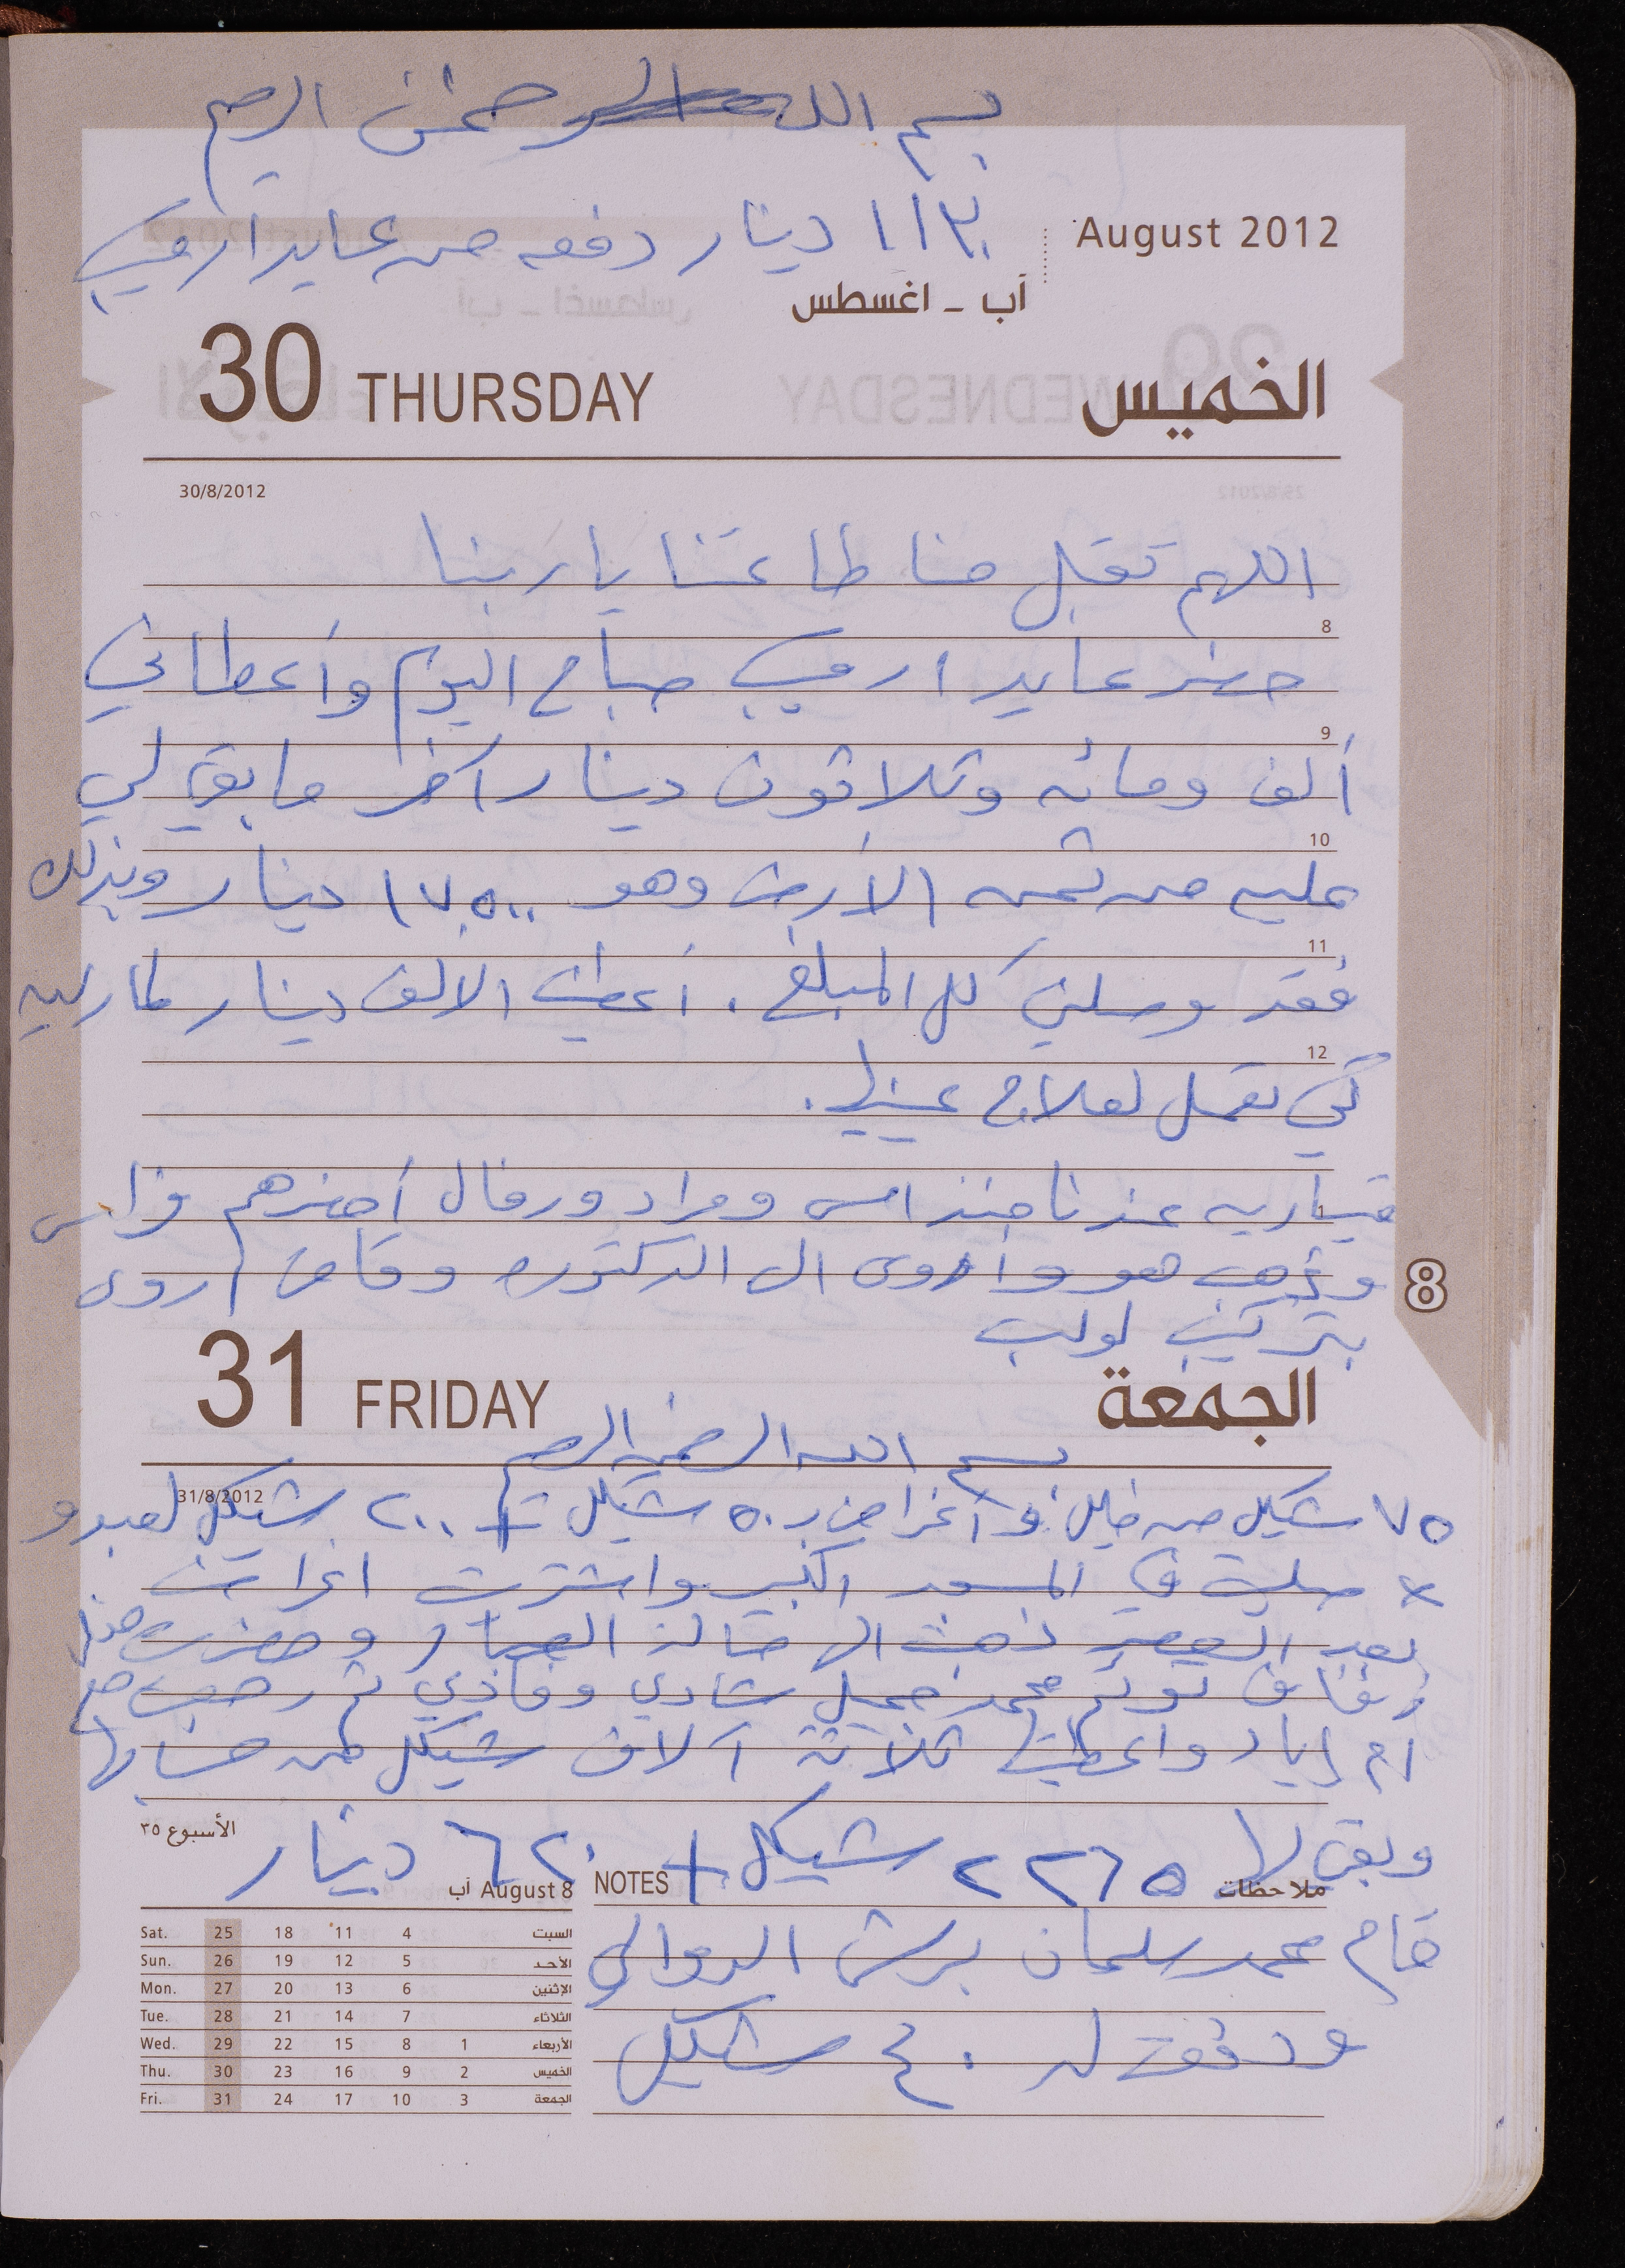 بسم الله الرحمن الرحيم
١١٣٠ دينار دفعه من عايد ارميب
August 2012
آب - اغسطس
30 THURSDAY الخميس
30/8/2012
اللهم تقبل منا طاعتنا يا ربنا
8
حضر عايد ارميب صباح اليوم وأعطاني
9
ألف ومائه وثلاثون دينار آخر ما بقي لي
10
عليه من ثمن الأرض وهو ١٧٥٠٠ دينار وبذلك
11
فقد وصلني كل المبلغ . أعطيت الالف دينار لماريه
12
كي تعمل لعلاج عينيها .
1
قيساريه عندنا منذ امس ومراد ورفال أحضرهم فراس
وذهب هو وأروى الى الدكتوره وقامت اروى
بتركيب لولب
8
31 FRIDAY الجمعة
بسم الله الرحمن الرحيم
31/8/2012
٧٥ شيكل من خليل وأغراض بـ ٥٠ شيكل + ٢٠٠ شيكل لعبدو
× صليت في المسجد الكبير واشتريت اغراض
بعد العصر ذهبت الى صالة وحضرت
زفاف توئم محمد جميل شادي وفادي ثم رجعت مع
ام إياد واعطيتها ثلاثة آلاف شيكل من حسابها
وبقي لها ٢٢٦٥ شيكل + ٦٢٠ دينار
الأسبوع ٣٥
August 8 آب
NOTES ملاحظات
قام محمد سلمان برش الدوالي
ودفعت له ٤٠ شيكل
Sat. 25 18 11 4 السبت
Sun. 26 19 12 5 الأحد
Mon. 27 20 13 6 الإثنين
Tue. 28 21 14 7 الثلاثاء
Wed. 29 22 15 8 1 الأربعاء
Thu. 30 23 16 9 2 الخميس
Fri. 31 24 17 10 3 الجمعة